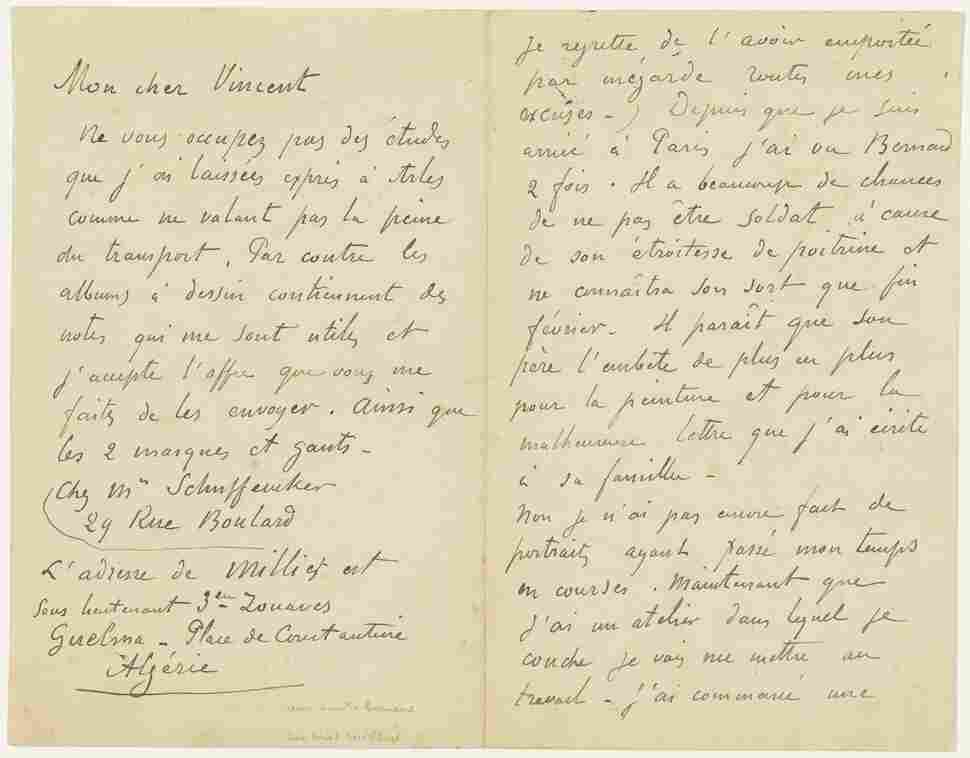 Mon cher Vincent
Ne vous occupez pas des études
que j'ai laissées exprès à Arles
comme ne valant pas la peine
du transport. Par contre les
albums à dessin contiennent des
notes qui me sont utiles et
j'accepte l'offre que vous me
faites de les envoyer. Ainsi que
les 2 masques et gants –
Chez Mr Schuffeneker
29 Rue Boulard
L'adresse de Milliet est
Sous lieutenant 3em Zouaves
Guelma – Place de Constantine
Algérie
je regrette de l'avoir emportée
par mégarde toutes mes
excuses –) Depuis que je suis
arrivé à Paris j'ai vu Bernard
2 fois. Il a beaucoup de chances
de ne pas être soldat à cause
de son étroitesse de poitrine et
ne connaîtra son sort que fin
février – Il paraît que son
père l'embête de plus en plus
pour la peinture et pour la
malheureuse lettre que j'ai écrite
à sa famille –
Non je n'ai pas encore fait de
portraits ayant passé mon temps
en courses. Maintenant que
j'ai un atelier dans lequel je
couche je vais me mettre au
travail – J'ai commencé une